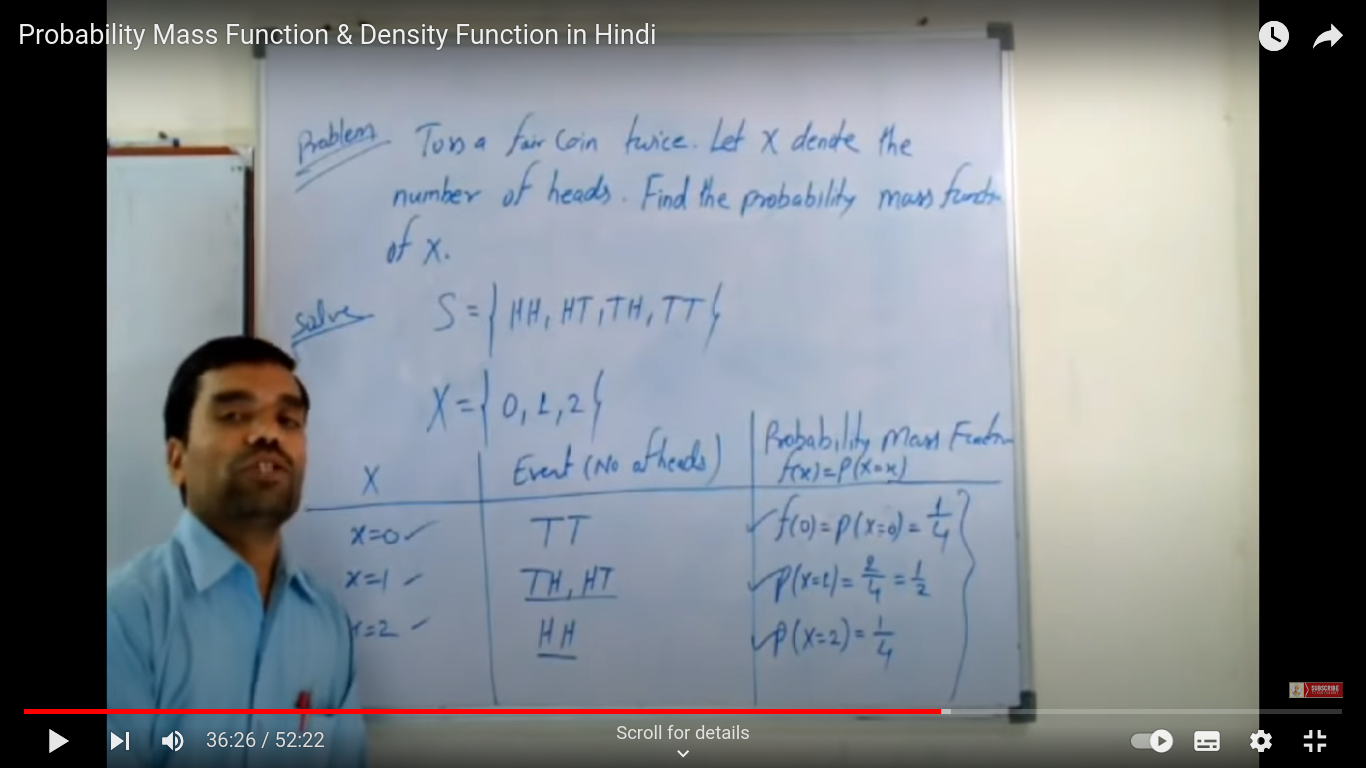 Probability Mass Function & Density Function in Hindi
Problem Toss a fair coin twice. Let X denote the
number of heads. Find the probability mass
of X.
Solve S = { HH, HT, TH, TT }
X = { 0, 1, 2 }
X Event (No of heads) Probability Mass
f(x) = P(X=x)
x=0 ✓ TT ✓ f(0) = P(X=0) = 1/4
x=1 ✓ TH, HT ✓ P(X=1) = 2/4 = 1/2
x=2 ✓ HH ✓ P(X=2) = 1/4
SUBSCRIBE
36:26 / 52:22
Scroll for details